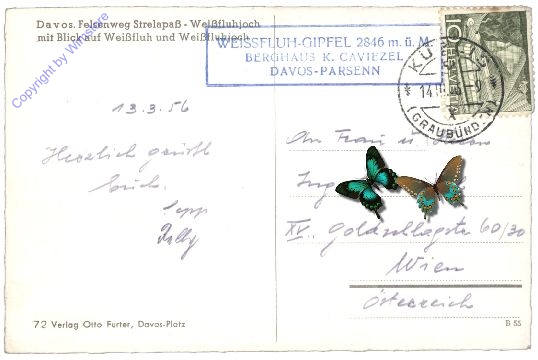 Davos. Felsenweg Strelapaß - Weißfluhjoch
mit Blick auf Weißfluh und Weißfluhjoch
Copyright by Winstore
WEISSFLUH-GIPFEL 2846 m. ü. M.
BERGHAUS K. CAVIEZEL
DAVOS-PARSENN
10
HELVETIA
(GRAUBÜNDEN)
13.3.56
Herzlich grüßt
Euch
Sepp
An Frau u.
Ing
XV. Goldschlagstr 60/30
Wien
Österreich
72 Verlag Otto Furter, Davos-Platz
B 55